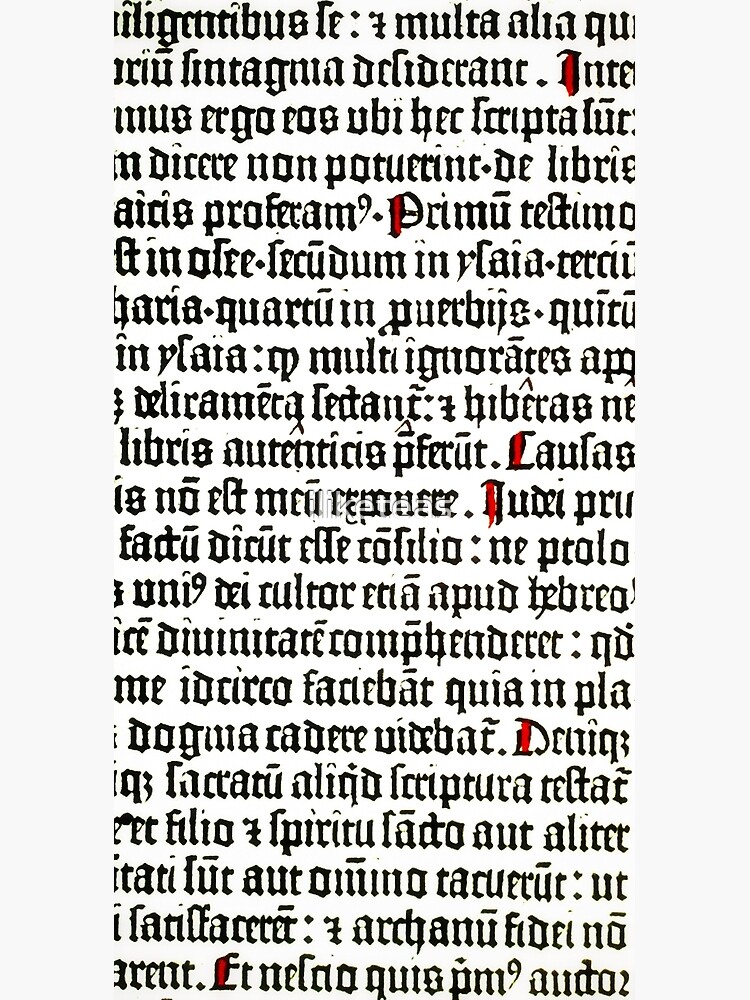 iligentibus se: ⁊ multa alia qu
oriū sintagma desiderant. Inte
mus ergo eos ubi hec scripta sūt:
m dicere non potuerint·de libris
aicis proferamꝰ·Primū testimo
st in osee·secūdum in ysaia·terciū
haria·quartū in ꝓuerbijs·quītū
in ysaia: multi ignorātes
deliramēta sectant᷑: ⁊ hibêras nê
libris autênticis p̄ferūt. Causas
is nō est meū exponere. Iudei pru
factū dicūt esse cōsilio: ne ptolo
s uniꝰ dei cultor etiā apud hebreoꝰ
icē diuinitatē comp̄henderet: qd̄
me idcirco faciebāt quia in pla
dogma cadere uidebat᷑. Deniqꝫ
iqꝫ sacratū aliqd̄ scriptura testat᷑
et filio ⁊ spiritu sācto aut aliter
itati sūt aut om̄ino tacuerūt: ut
i satisfaceret᷑: ⁊ archanū fidei nō
arent. Et nescio quis p̄mꝰ auctor
iliketeas